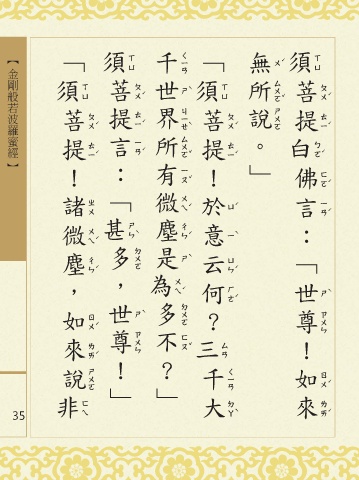 須菩提白佛言：「世尊！如來
無所說。」
「須菩提！於意云何？三千大
千世界所有微塵是為多不？」
須菩提言：「甚多，世尊！」
「須菩提！諸微塵，如來說非
【金剛般若波羅蜜經】
35